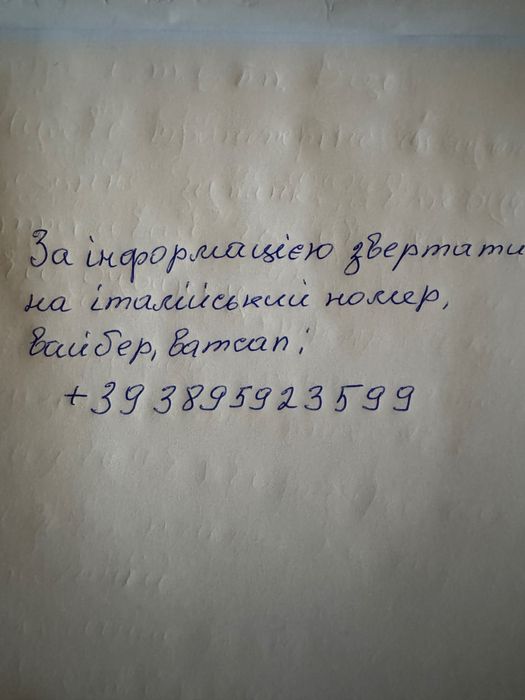 За інформацією звертати
на італійський номер,
вайбер, ватсап:
+393895923599